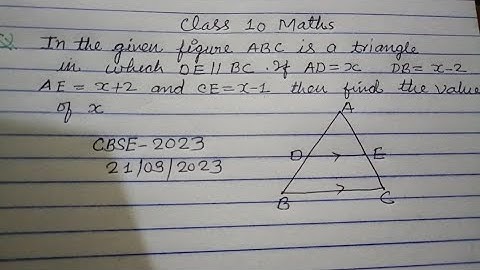 Class 10 Maths
Q In the given figure ABC is a triangle
in which DE || BC. If AD = x DB = x-2
AE = x+2 and CE = x-1 then find the value
of x
A
CBSE-2023
D E
21/03/2023
B C